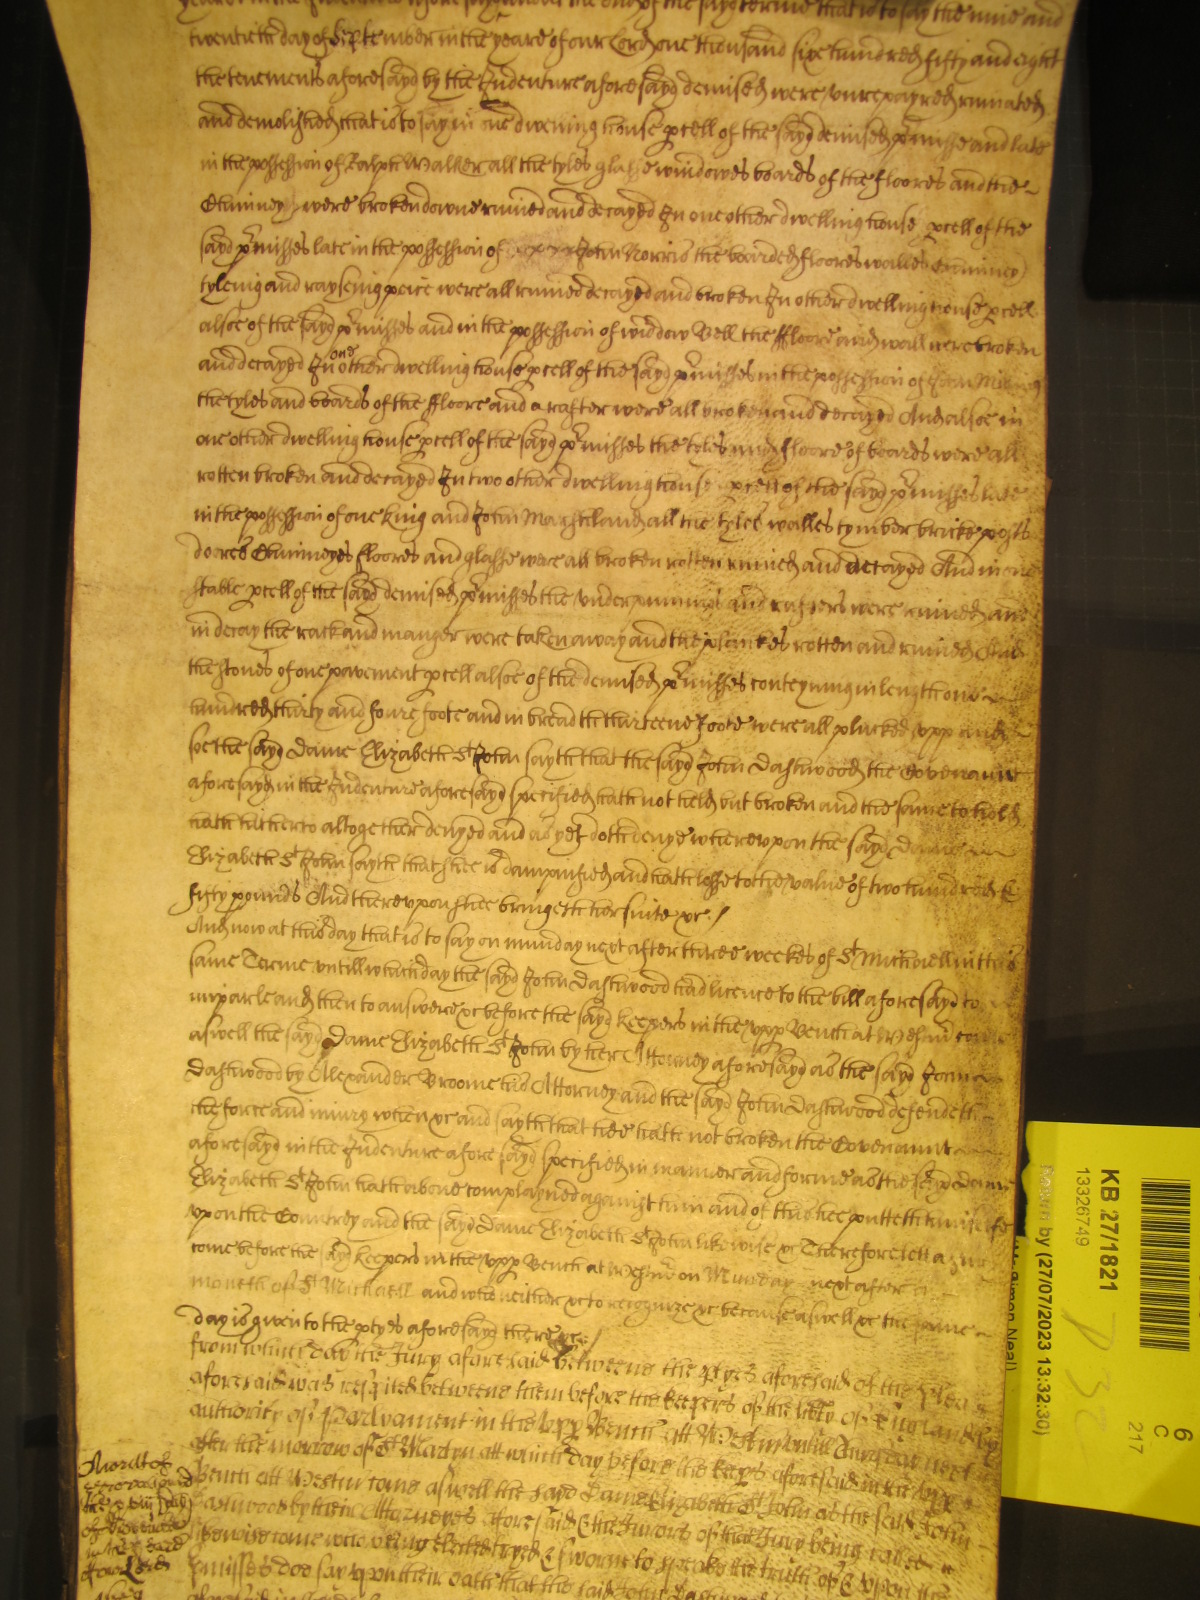 twentieth day of September in the yeare of our Lord one thousand sixe hundred fifty and eight
the tenements aforesayd by the Indenture aforesayd demised were unrepayred ruinated
and demolished that is to say in one dwelling house pcell of the sayd demised pmisse and late
in the possession of Ralph Walker all the tyles glasse windowes boards of the floores and the
Chimney were broken downe ruined and decayed In one other dwelling house pcell of the
sayd pmisses late in the possession of John Norris the boarded floores walles Chimney
tyleing and rayseing peice were all ruined decayed and broken In other dwelling house pcell
alsoe of the sayd pmisses and in the possession of widdow Bell the ffloore and wall were broken
and decayed In one other dwelling house pcell of the sayd pmisses in the possession of
the tyles and boards of the ffloore and a rafter were all broken and decayed And alsoe in
one other dwelling house pcell of the sayd pmisses the tyles and floore of boards were all
rotten broken and decayed In two other dwelling house pcell of the sayd pmisses late
in the possession of one King and John all the tyles walles tymber bricke posts
doores Chimneyes floores and glasse were all broken rotten ruined and decayed And in one
stable pcell of the sayd demised pmisses the underpinnings and rafters were ruined and
in decay the rack and manger were taken away and the planckes rotten and ruined And
the stones of one pavement pcell alsoe of the demised pmisses conteyning in length one
hundred thirty and foure foote and in breadth thirteene foote were all plucked upp and
soe the sayd Dame Elizabeth St John sayth that the sayd John Dashwood the Covenaunt
aforesayd in the Indenture aforesayd specified hath not held but broken and the same to hold
hath hitherto altogether denyed and as yet doth denye whereupon the sayd Dame
Elizabeth St John sayth that shee is dampnified and hath losse to the value of two hundred &
fifty pounds And thereupon shee bringeth her suite &c
And now at this day that is to say on munday next after three weekes of St Michaell in this
same Terme untill which day the sayd John Dashwood had licence to the bill aforesayd to
imparle and then to answere &c before the sayd Keepers in the upp Bench at Westm come
aswell the sayd Dame Elizabeth St John by her Attorney aforesayd as the sayd John
Dashwood by Alexander Broome his Attorney and the sayd John Dashwood defendeth
the force and iniury when &c and sayth that hee hath not broken the Covenaunt
aforesayd in the Indenture aforesayd specified in manner and forme as the sayd Dame
Elizabeth St John hath above complayned against him and of this hee putteth himselfe
upon the Countrey and the sayd Dame Elizabeth St John likewise &c Therefore lett a Jury
come before the sayd Keepers in the upp Bench at Westm on Munday next after
moneth of St Michaell and who neither &c to recognize &c because aswell &c the same
day is given to the ptyes aforesayd there &c
from which day the Jury aforesaid betweene the ptyes aforesaid of the plea
aforesaid was respited betweene them before the keepers of the libty of England by
authority of Parlyament in the upp Bench att Westm untill next
after the morrow of St Martyn att which day before the keeps aforesaid in the upp
bench att Westm come aswell the sayd Dame Elizabeth St John as the said John
Dashwood by their Attorneyes aforesaid & the Jurors of that Jury being called
likewise come were being elected tryed & sworne to speake the truth of & upon the
pmisses doe say upon their oath that the said John Dashwood
KB 27/1821
13326749
by (27/07/2023 13:32:30)
6
C
217